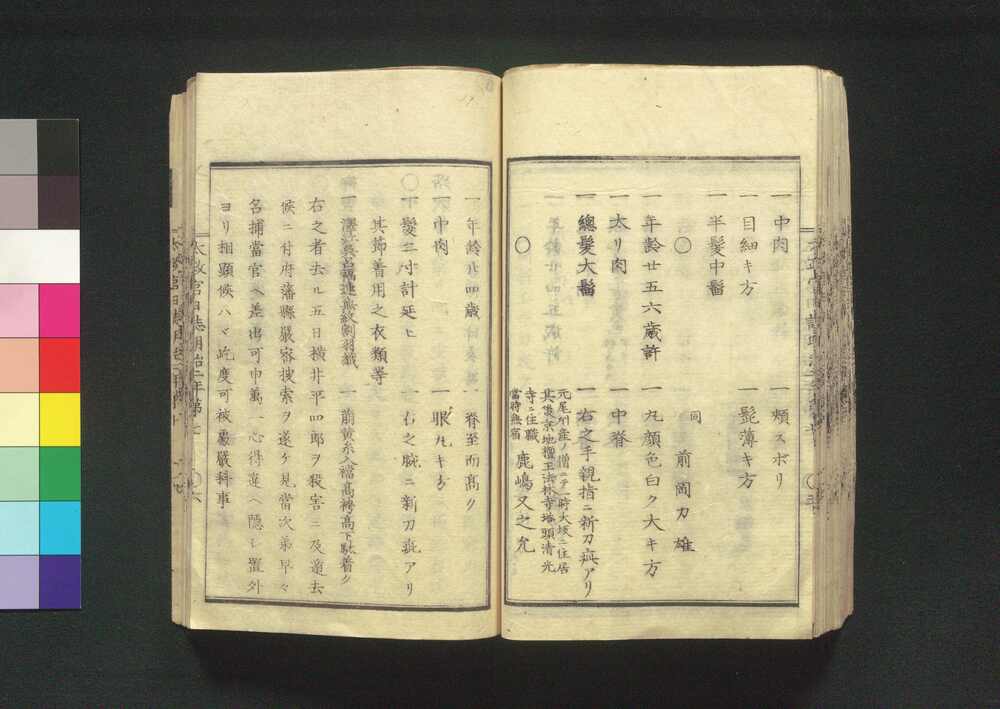 一 中肉 一 頰スボリ
一 目細キ方 一 髭薄キ方
一 半髪中髷
○ 同 前岡力雄
一 年齢廿五六歳許 一 丸顔色白ク大キ方
一 太リ肉 一 中脊
一 總髪大髷 一 右之手親指ニ新刀疵アリ
○ 元尾州産ノ僧ニテ一時大坂ニ住居
其後京地檀王法林寺塔頭清光
寺ニ住職
當時無宿 鹿嶋又之允
一 年齢廿四歳 一 脊至而髙ク
一 中肉 一 眼丸キ方
一 髪二寸計延ヒ 一 右之腕ニ新刀疵アリ
○ 其節着用之衣類等
一 澤瀉 無紋割羽織 一 萠黄糸入襠髙袴髙下駄着ク
右之者去ル五日横井平四郎ヲ殺害ニ及遁去
候ニ付府藩縣嚴密捜索ヲ遂ケ見當次第早々
召捕當官ヘ差出可申萬一心得違ヘ隱シ置外
ヨリ相顕候ハヽ屹度可被處嚴科事
太政官日誌明治二年第七 ○六